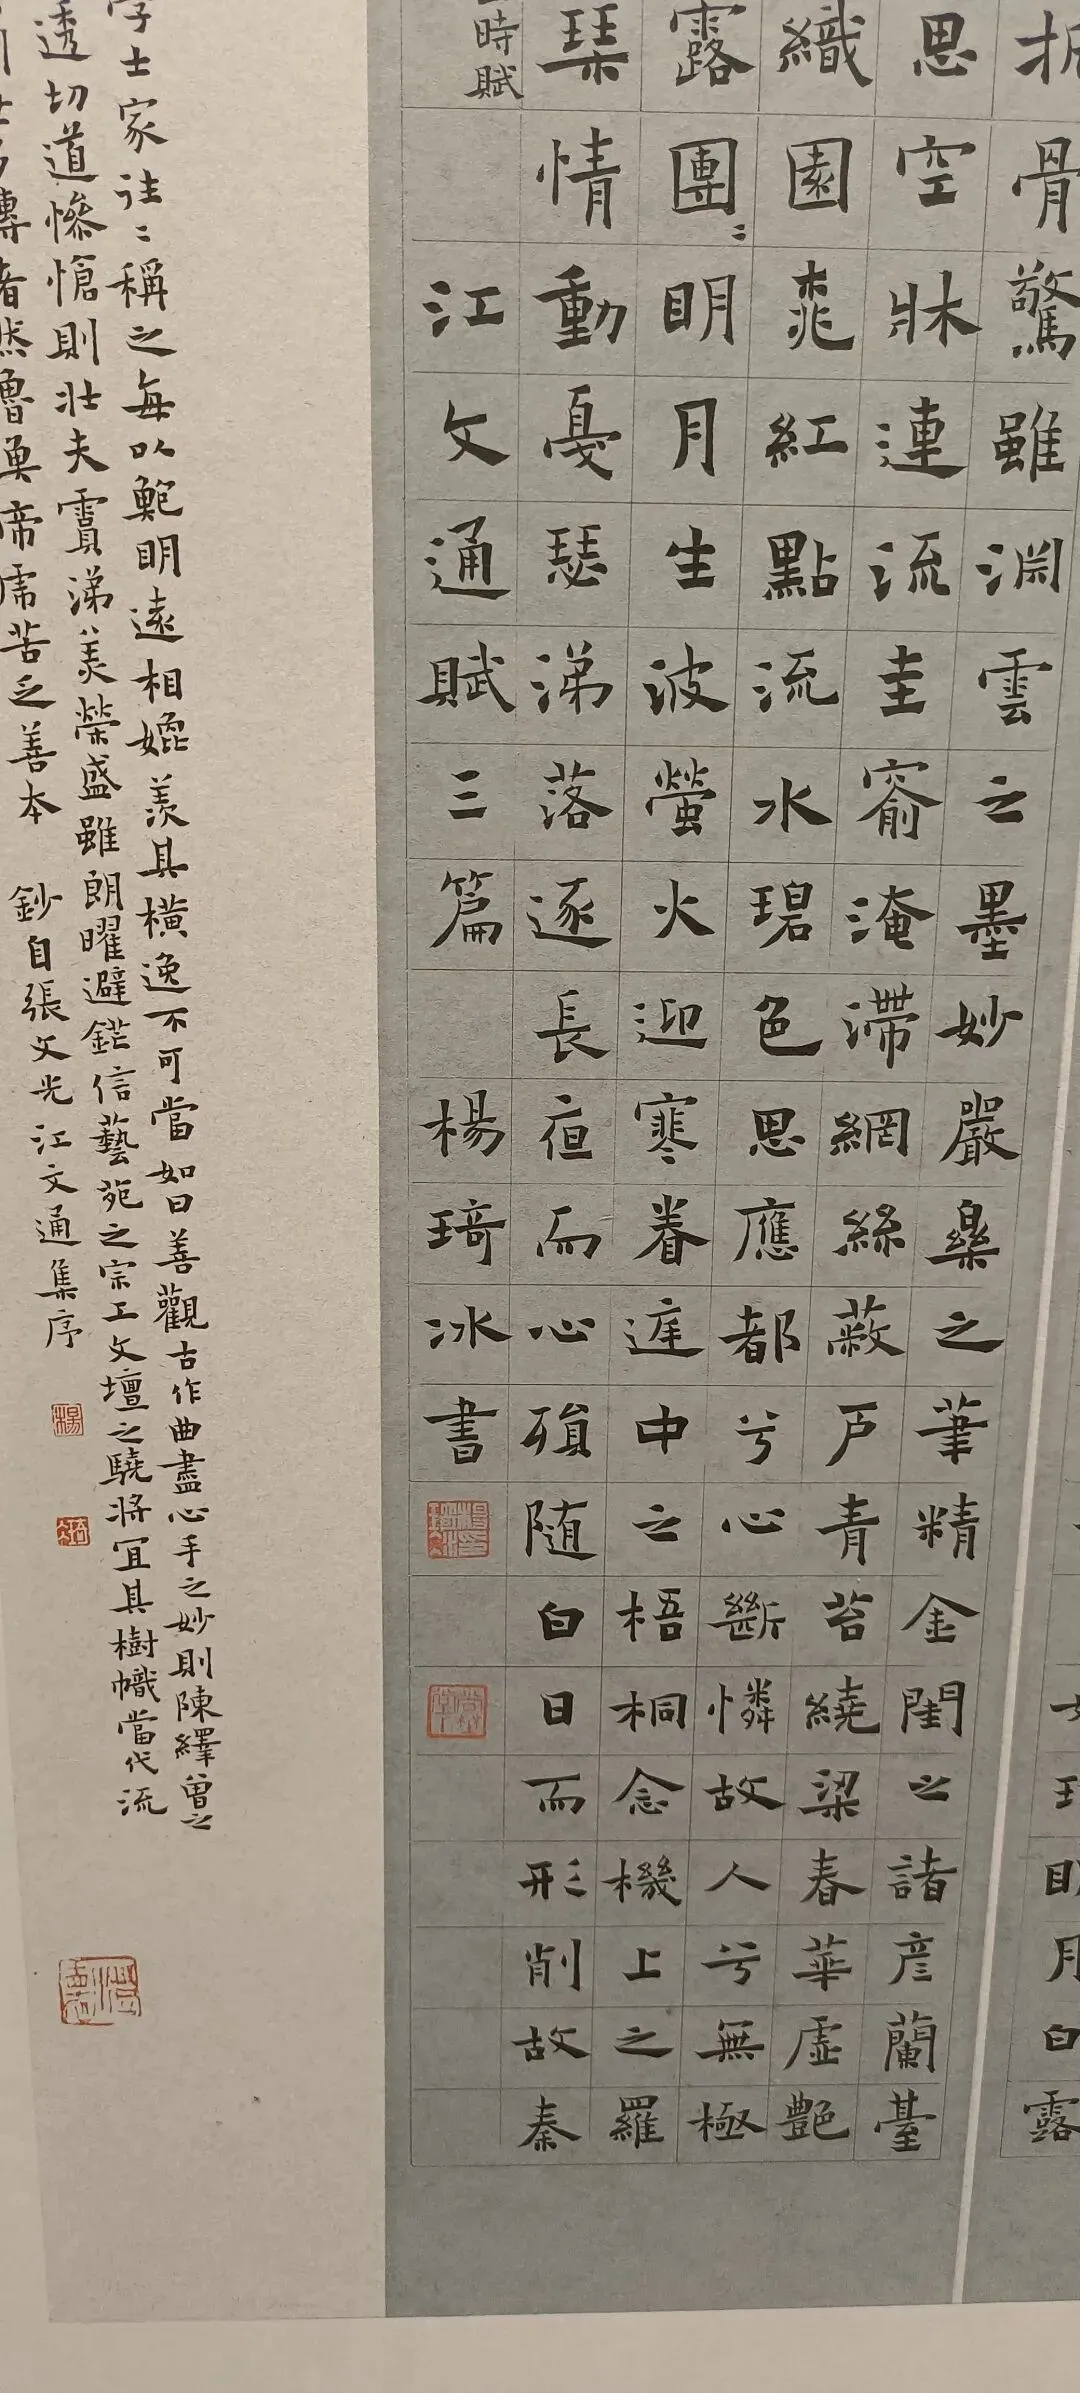 明月白露
骨驚雖淵雲之墨妙嚴樂之筆精金閨之諸彥蘭臺
思空牀連流圭窬淹滯網絲蔽戶青苔繞梁春華虛艷
織園桃紅點流水碧色思應都兮心斷憐故人兮無極
露團〻明月生波螢火迎寒眷庭中之梧桐念機上之羅
琹情動戛瑟涕落逐長夜而心殞隨白日而形削故秦
時賦
江文通賦三篇 楊琦冰書
士家往〻稱之每以鮑明遠相媲羨其橫逸不可當如曰善觀古作曲盡心手之妙則陳繹曾之
透切道慘愴則壯夫霣涕羙榮盛雖朗曜避鋩信藝苑之宗工文壇之驍將宜其樹幟當代流
傳者然魯奠帝虎苦乏善本 鈔自張文光江文通集序